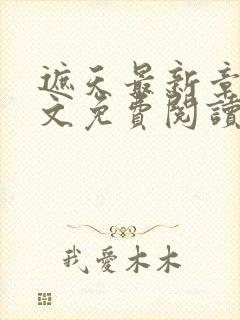 遮天最新章
文免費閱讀
我愛木木